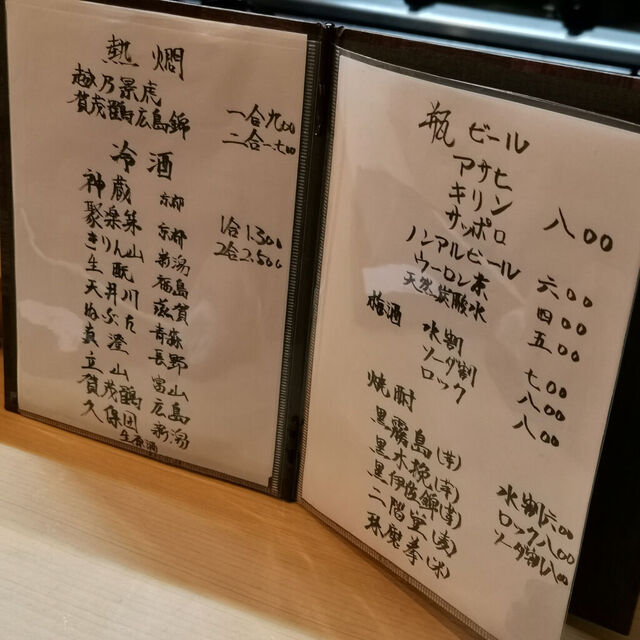 熱燗
越乃景虎
賀茂鶴広島錦
一合九00
二合一七00
冷酒
神蔵 京都
聚楽第 京都
きりん山 新潟
生酛 福島
天井川 滋賀
ぬぶた 青森
真澄 長野
立山 富山
賀茂鶴 広島
久保田 新潟
生原酒
1合1.300
2合2.500
瓶ビール
アサヒ
キリン
サッポロ
八00
ノンアルビール 六00
ウーロン茶 四00
天然炭酸水 五00
梅酒 水割 七00
ソーダ割 八00
ロック 八00
焼酎
黒霧島(芋)
黒木挽(芋)
黒伊佐錦(芋)
二階堂(麦)
球磨拳(米)
水割六00
ロック八00
ソーダ割八00